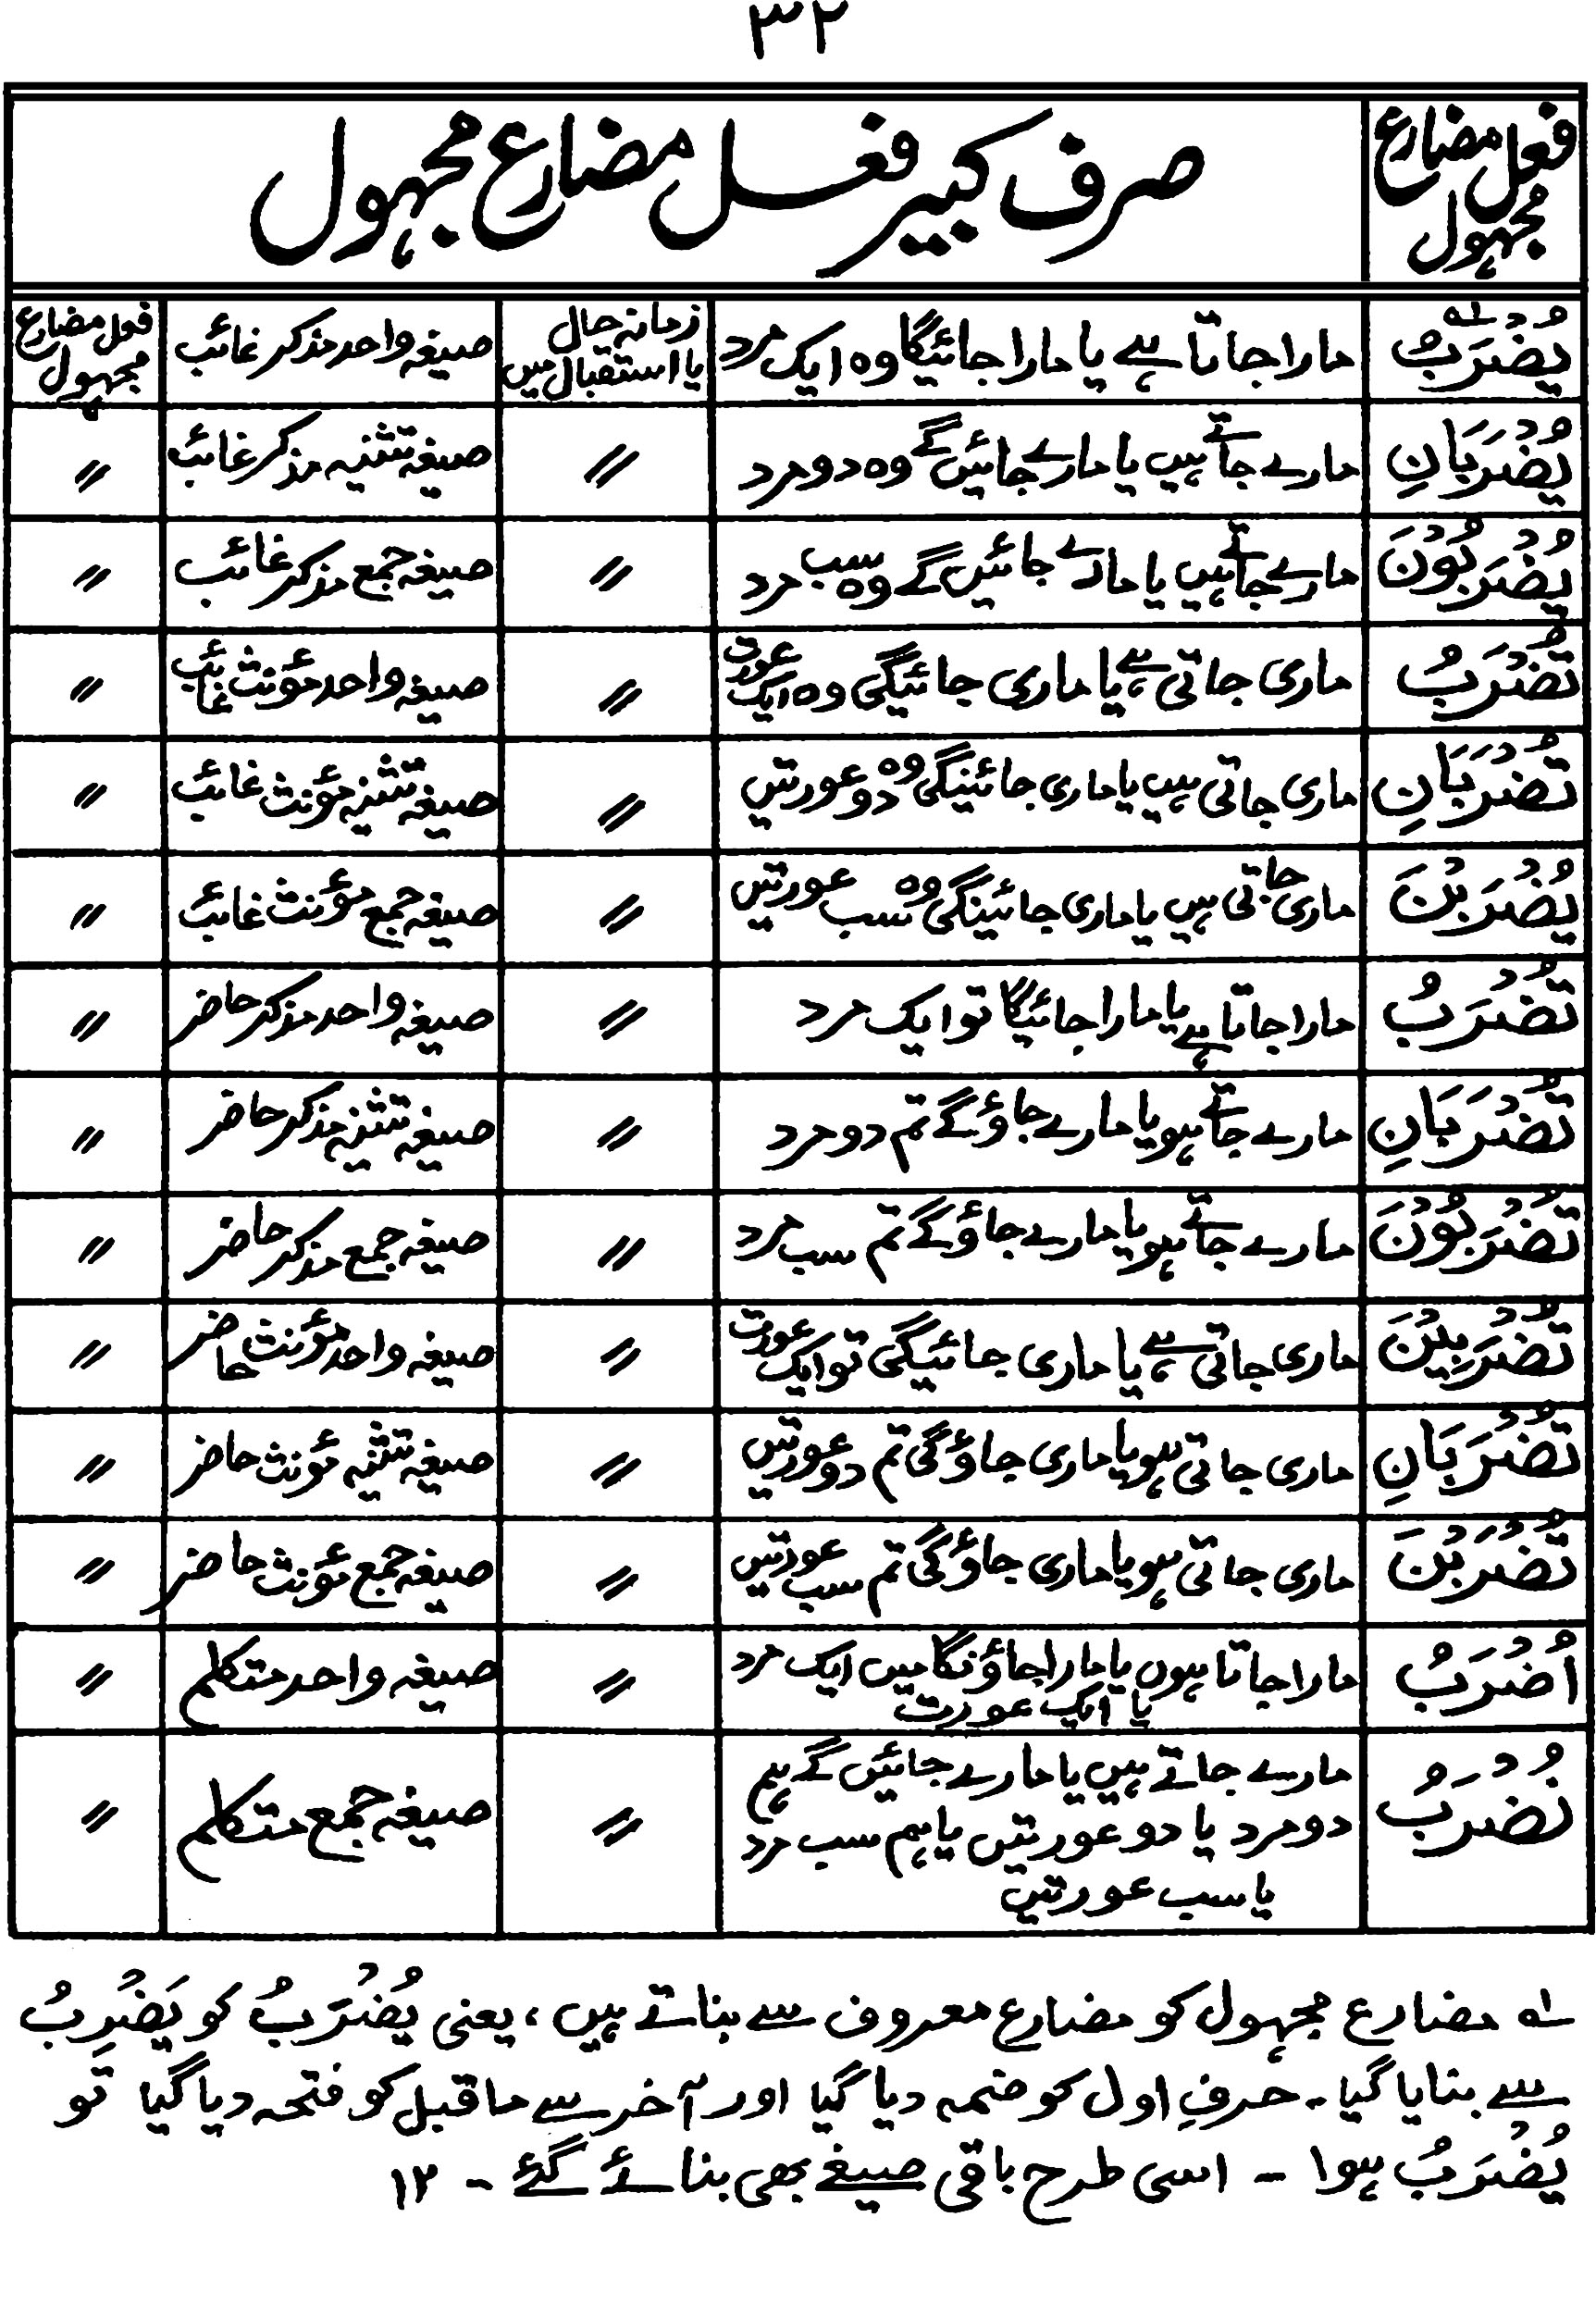 ۳۲
فعل مضارع مجہول	صرف کبیر فعل مضارع مجہول
یُضْرَبُ ؎۱	مارا جاتا ہے یا مارا جائیگا وہ ایک مرد	زمانہ حال یا استقبال میں	صیغہ واحد مذکر غائب	فعل مضارع مجہول
یُضْرَبَانِ	مارے جاتے ہیں یا مارے جائیں گے وہ دو مرد	〃	صیغہ تثنیہ مذکر غائب	〃
یُضْرَبُوْنَ	مارے جاتے ہیں یا مارے جائیں گے وہ سب مرد	〃	صیغہ جمع مذکر غائب	〃
تُضْرَبُ	ماری جاتی ہے یا ماری جائیگی وہ ایک عورت	〃	صیغہ واحد مؤنث غائب	〃
تُضْرَبَانِ	ماری جاتی ہیں یا ماری جائینگی وہ دو عورتیں	〃	صیغہ تثنیہ مؤنث غائب	〃
یُضْرَبْنَ	ماری جاتی ہیں یا ماری جائینگی وہ سب عورتیں	〃	صیغہ جمع مؤنث غائب	〃
تُضْرَبُ	مارا جاتا ہے یا مارا جائیگا تو ایک مرد	〃	صیغہ واحد مذکر حاضر	〃
تُضْرَبَانِ	مارے جاتے ہو یا مارے جاؤ گے تم دو مرد	〃	صیغہ تثنیہ مذکر حاضر	〃
تُضْرَبُوْنَ	مارے جاتے ہو یا مارے جاؤ گے تم سب مرد	〃	صیغہ جمع مذکر حاضر	〃
تُضْرَبِیْنَ	ماری جاتی ہے یا ماری جائیگی تو ایک عورت	〃	صیغہ واحد مؤنث حاضر	〃
تُضْرَبَانِ	ماری جاتی ہو یا ماری جاؤ گی تم دو عورتیں	〃	صیغہ تثنیہ مؤنث حاضر	〃
تُضْرَبْنَ	ماری جاتی ہو یا ماری جاؤ گی تم سب عورتیں	〃	صیغہ جمع مؤنث حاضر	〃
اُضْرَبُ	مارا جاتا ہوں یا مارا جاؤنگا میں ایک مرد یا ایک عورت	〃	صیغہ واحد متکلم	〃
نُضْرَبُ	مارے جاتے ہیں یا مارے جائیں گے ہم دو مرد یا دو عورتیں یا ہم سب مرد یا سب عورتیں	〃	صیغہ جمع متکلم	〃
؎۱ مضارع مجہول کو مضارع معروف سے بناتے ہیں، یعنی یُضْرَبُ کو یَضْرِبُ
سے بنایا گیا۔ حرفِ اول کو ضمہ دیا گیا اور آخر سے ماقبل کو فتحہ دیا گیا تو
یُضْرَبُ ہوا ۔ اسی طرح باقی صیغے بھی بنائے گئے ۔ ۱۲